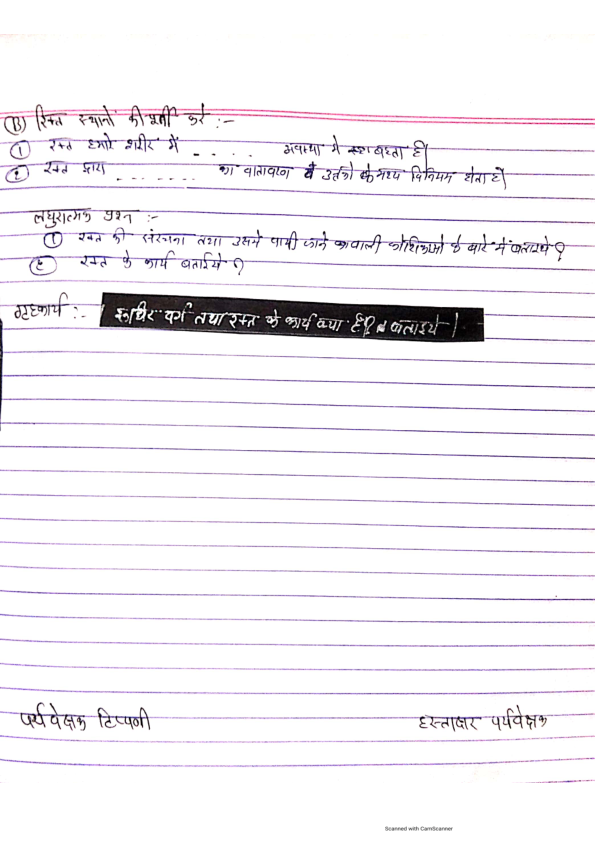 (B) रिक्त स्थानों की पूर्ती करे :-
(1) रक्त हमारे शरीर में - - - - - अवस्था में बहता है|
(2) रक्त द्वारा - - - - - - - का वातावरण व उतकों के मध्य विनियम होता है|
लघुरात्मक प्रश्न :-
(1) रक्त की संरचना तथा उसमे पायी जाने वाली कोशिकाओ के बारे में बताइये ?
(2) रक्त के कार्य बताईये ?
गृहकार्य :- रूधिर वर्ग तथा रक्त के कार्य क्या है? बताइये |
पर्यवेक्षक टिप्पणी हस्ताक्षर पर्यवेक्षक
Scanned with CamScanner